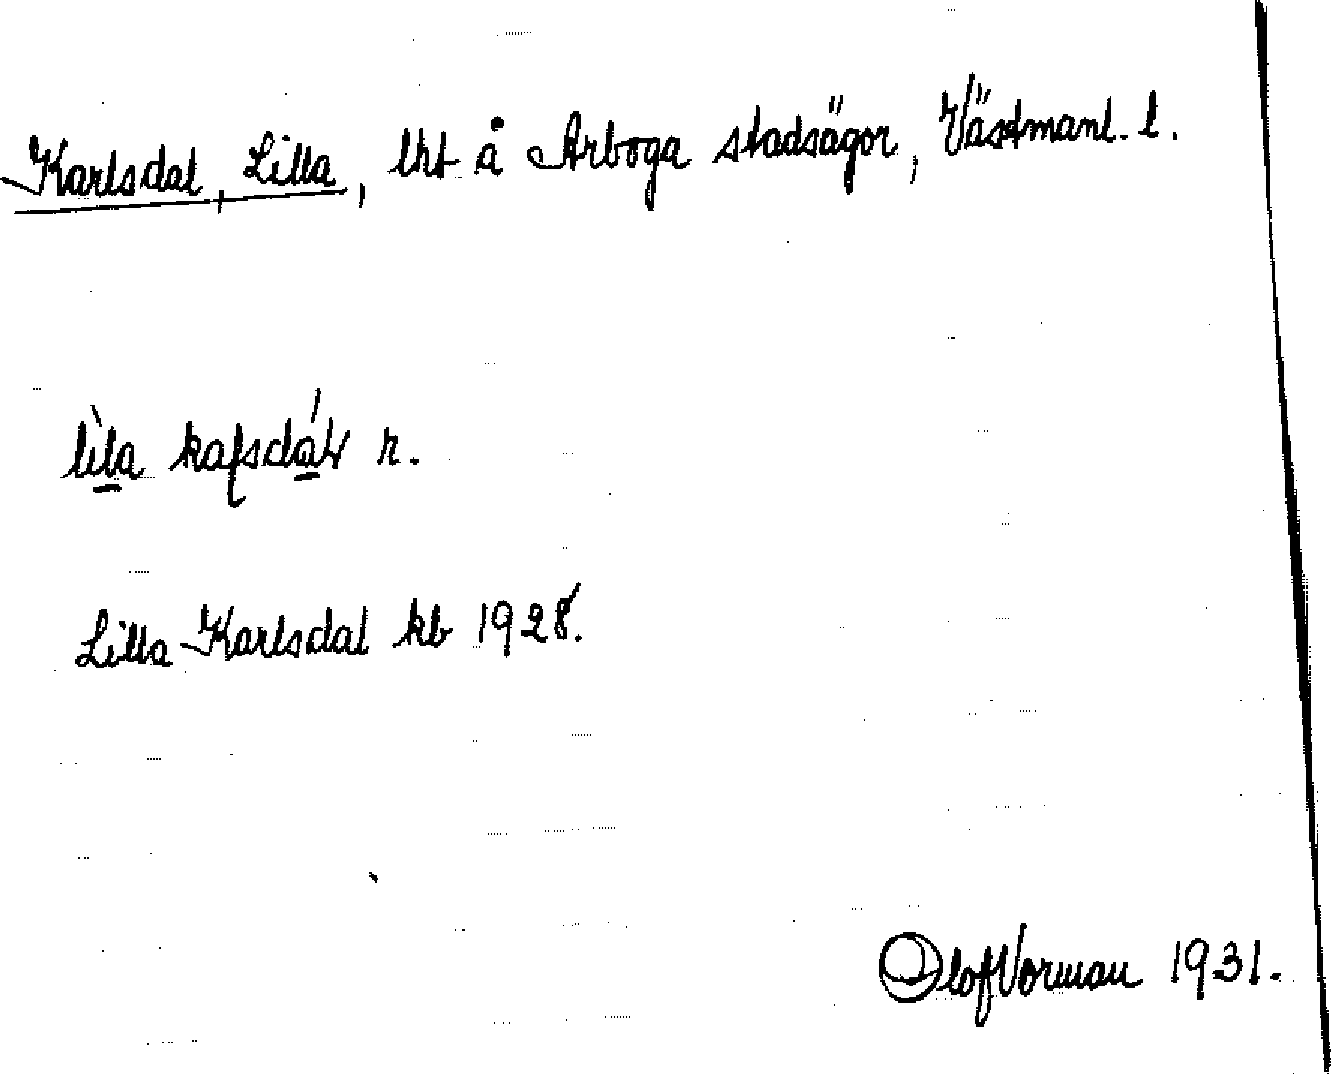 Karlsdal, Lilla, lht å Arboga stadsägor, Västmanl. l.
lìla kaʃsdál r.
Lilla Karlsdal kb 1928.
Olof Vorman 1931.